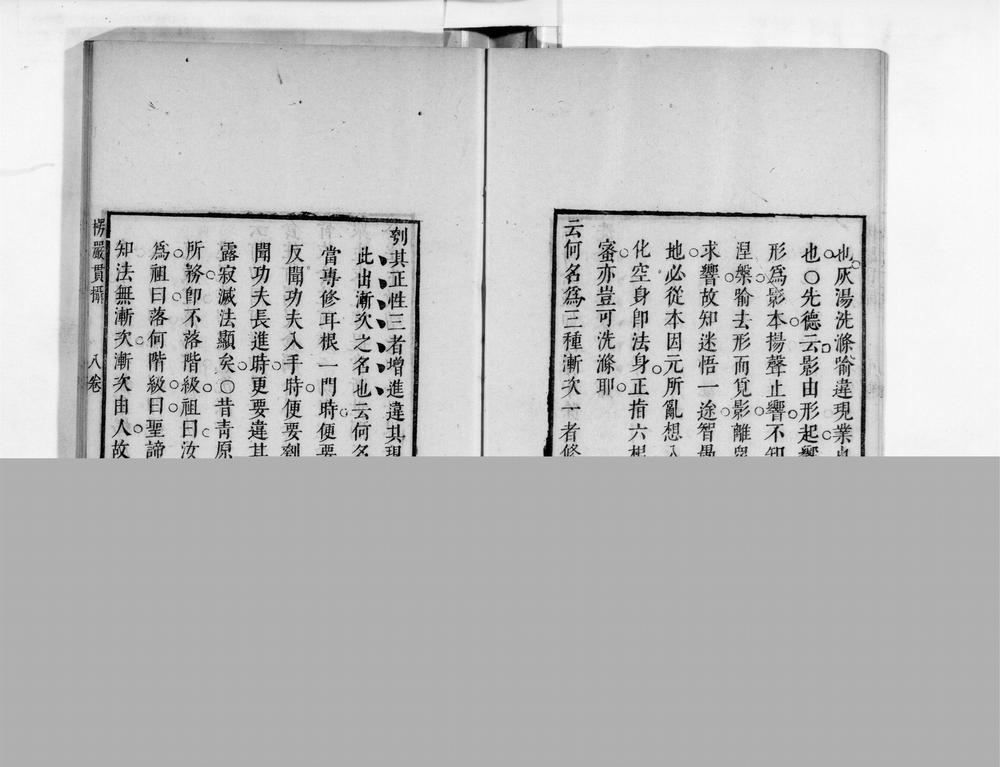 也灰湯洗滌喻違現業
也○先德云影由形起響
形為影本揚聲止響不知
涅槃喻去形而覓影離
求響故知迷悟一途智愚
地必從本因元所亂想入
化空身卽法身正指六根
蜜亦豈可洗滌耶
云何名為三種漸次一者修
刳其正性三者增進違其現
此出漸次之名也云何名
當專修耳根一門時便要
反聞功夫入手時便要刳
聞功夫長進時更要違其
露寂滅法顯矣○昔靑原
所務卽不落階級祖曰汝
為祖曰落何階級曰聖諦
知法無漸次漸次由人故
楞嚴貫攝　八卷